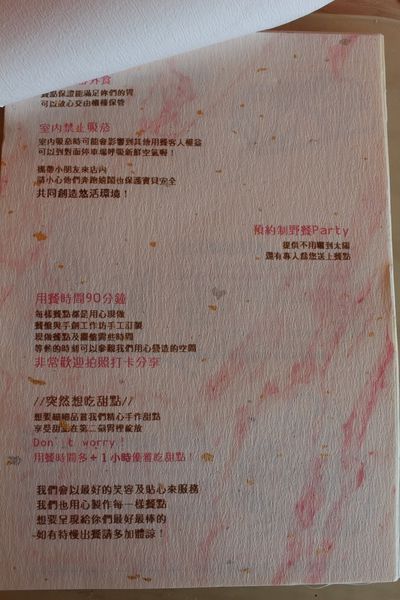 外食
餐點保證能滿足你們的胃
可以放心交由櫃檯保管
室內禁止吸菸
室內吸菸時可能會影響到其他用餐客人權益
可以到對面停車場呼吸新鮮空氣喔！
攜帶小朋友來店內
請小心他們奔跑嬉鬧也保護寶貝安全
共同創造悠活環境！
預約制野餐Party
提供不用曬到太陽
還有專人為您送上餐點
用餐時間90分鐘
每樣餐點都是用心現做
餐盤與手創工作坊手工訂製
現做餐點及擺盤需些時間
等餐的時刻可以參觀我們用心營造的空間
非常歡迎拍照打卡分享
//突然想吃甜點//
想要細細品嘗我們精心手作甜點
享受甜點在第二個胃裡綻放
Don't worry！
用餐時間多+1小時優雅吃甜點！
我們會以最好的笑容及貼心來服務
我們也用心製作每一樣餐點
想要呈現給你們最好最棒的
~如有待慢出餐請多加體諒！